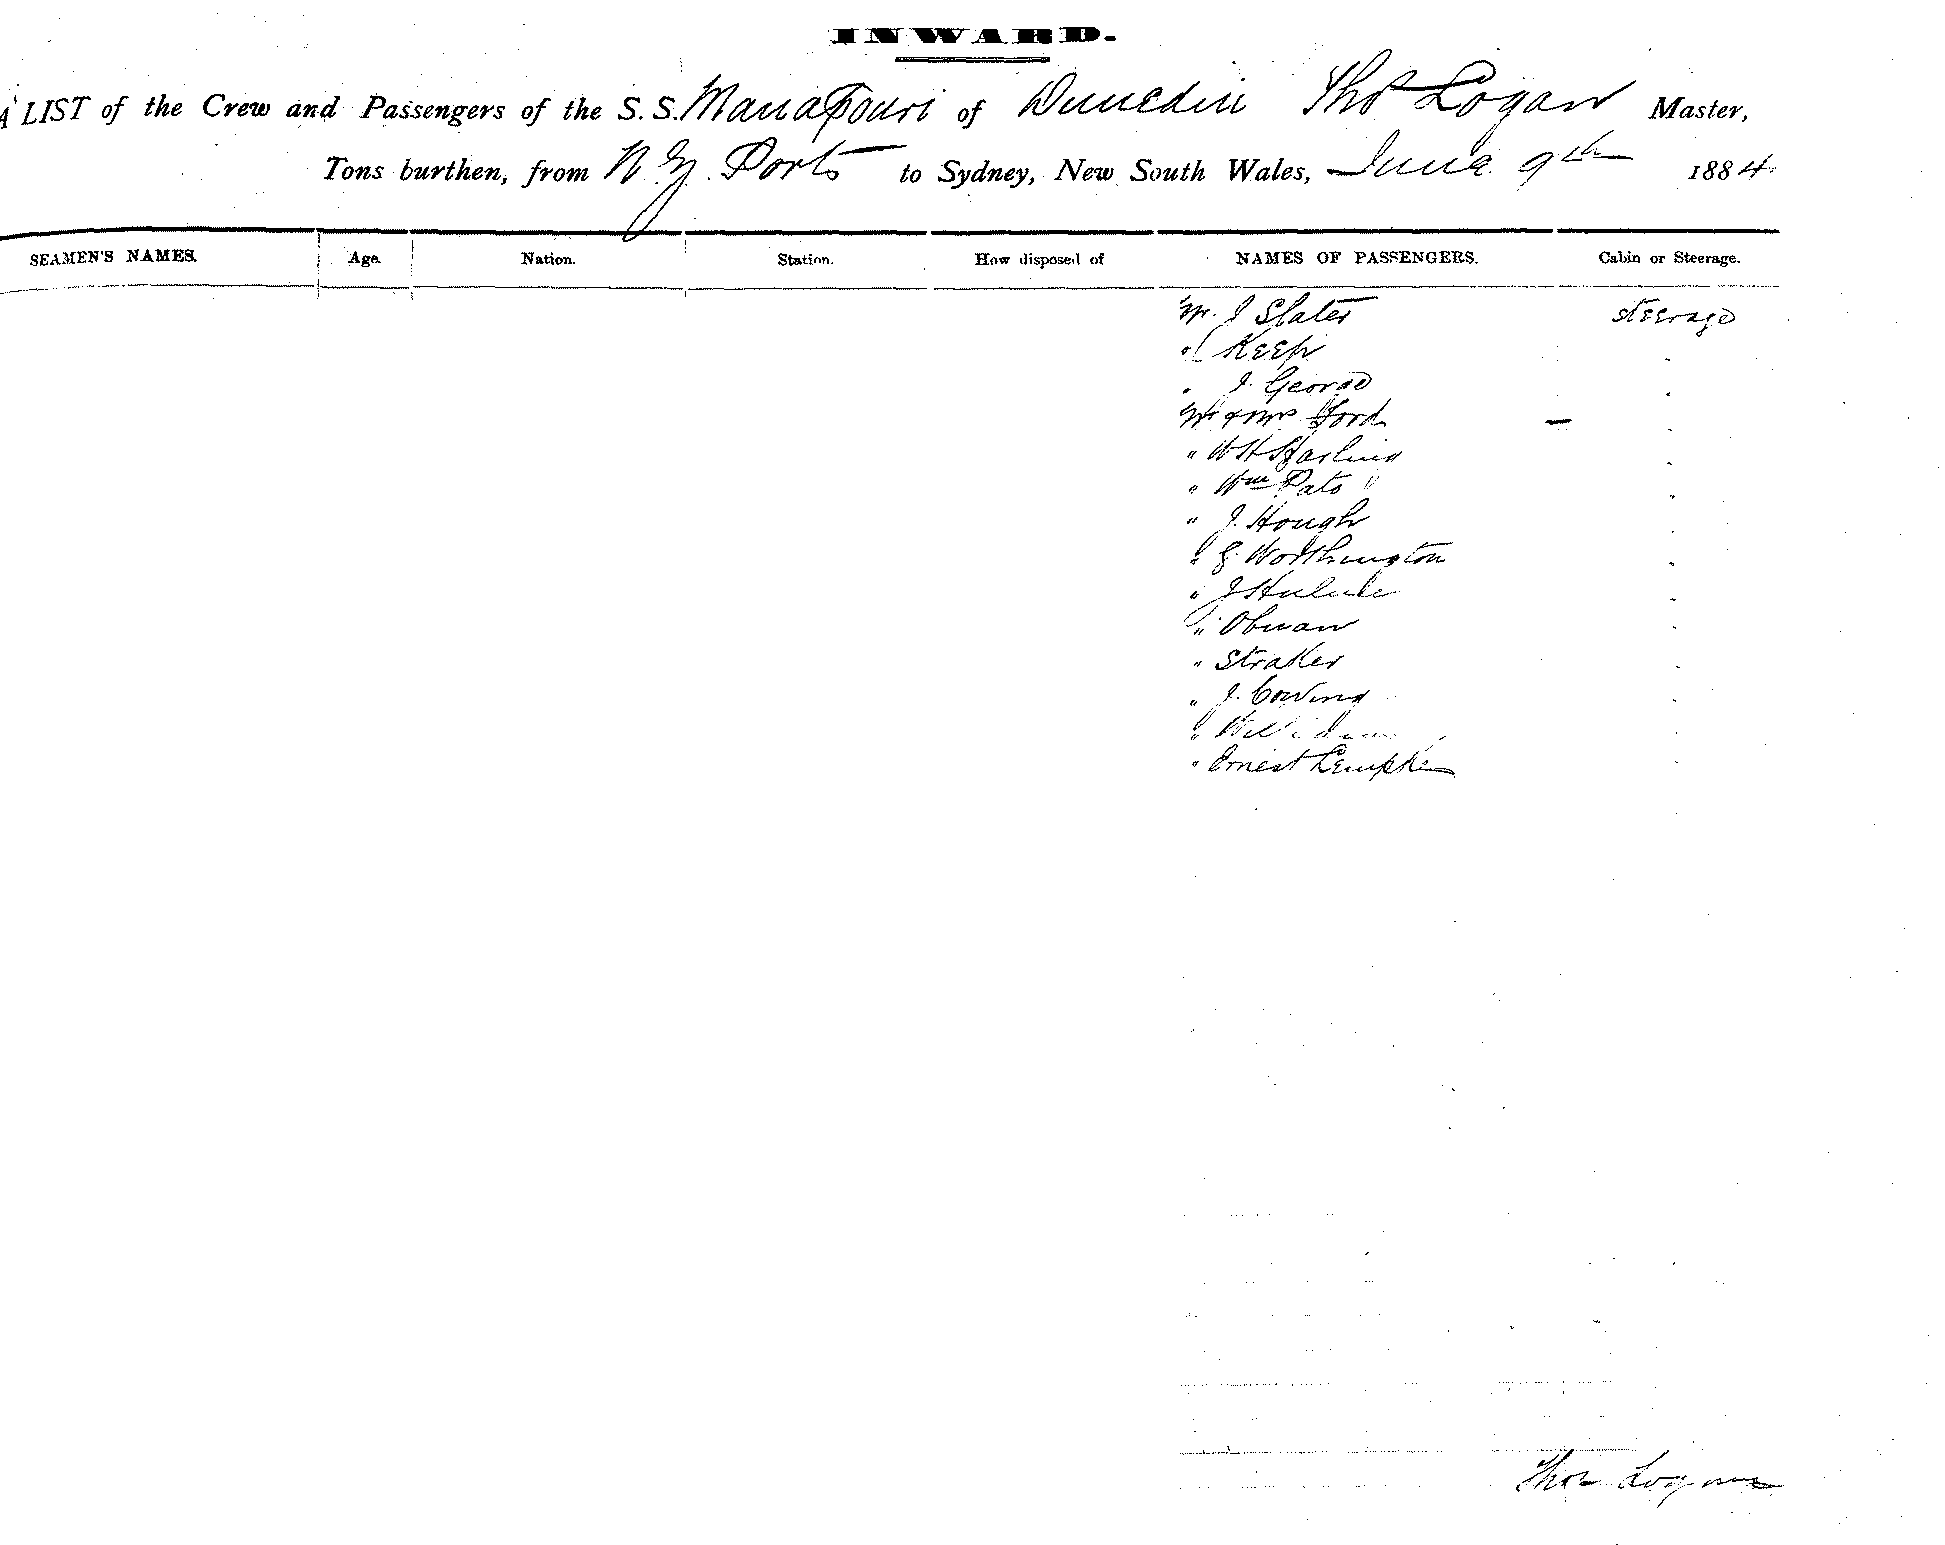 INWARD.
A LIST of the Crew and Passengers of the S. S. Manapouri of Dunedin Thos Logan Master,
Tons burthen, from N. Z. Ports to Sydney, New South Wales, June 9th 1884
SEAMEN'S NAMES. Age. Nation. Station. How disposed of NAMES OF PASSENGERS. Cabin or Steerage.
Mr. J Slater steerage
" Keep "
" J. George "
Mr & Mrs Ford "
" W H Harling "
" Wm Pato "
" J. Hough "
" Worthington "
" J "
" "
" Straker "
" J. Cowing "
" "
" Ernest Lempke "
Thos Logan